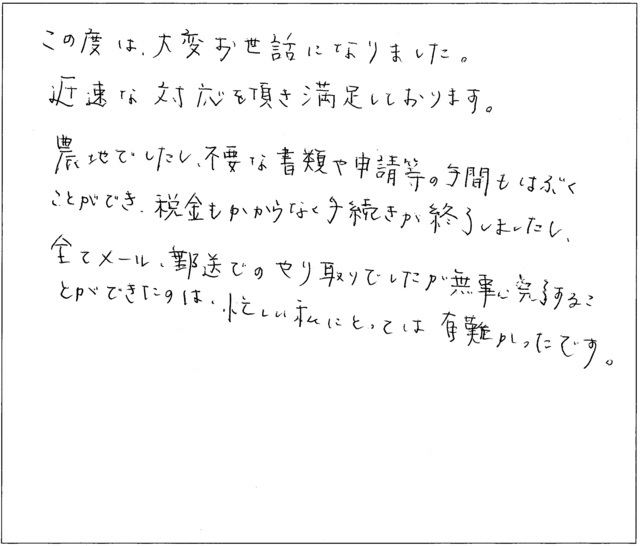 この度は、大変お世話になりました。
迅速な対応を頂き満足しております。
農地でしたし、不要な書類や申請等の手間もはぶく
ことができ、税金もかからなく手続きが終了しましたし、
全てメール、郵送でのやり取りでしたが無事に完了するこ
とができたのは、忙しい私にとっては有難かったです。